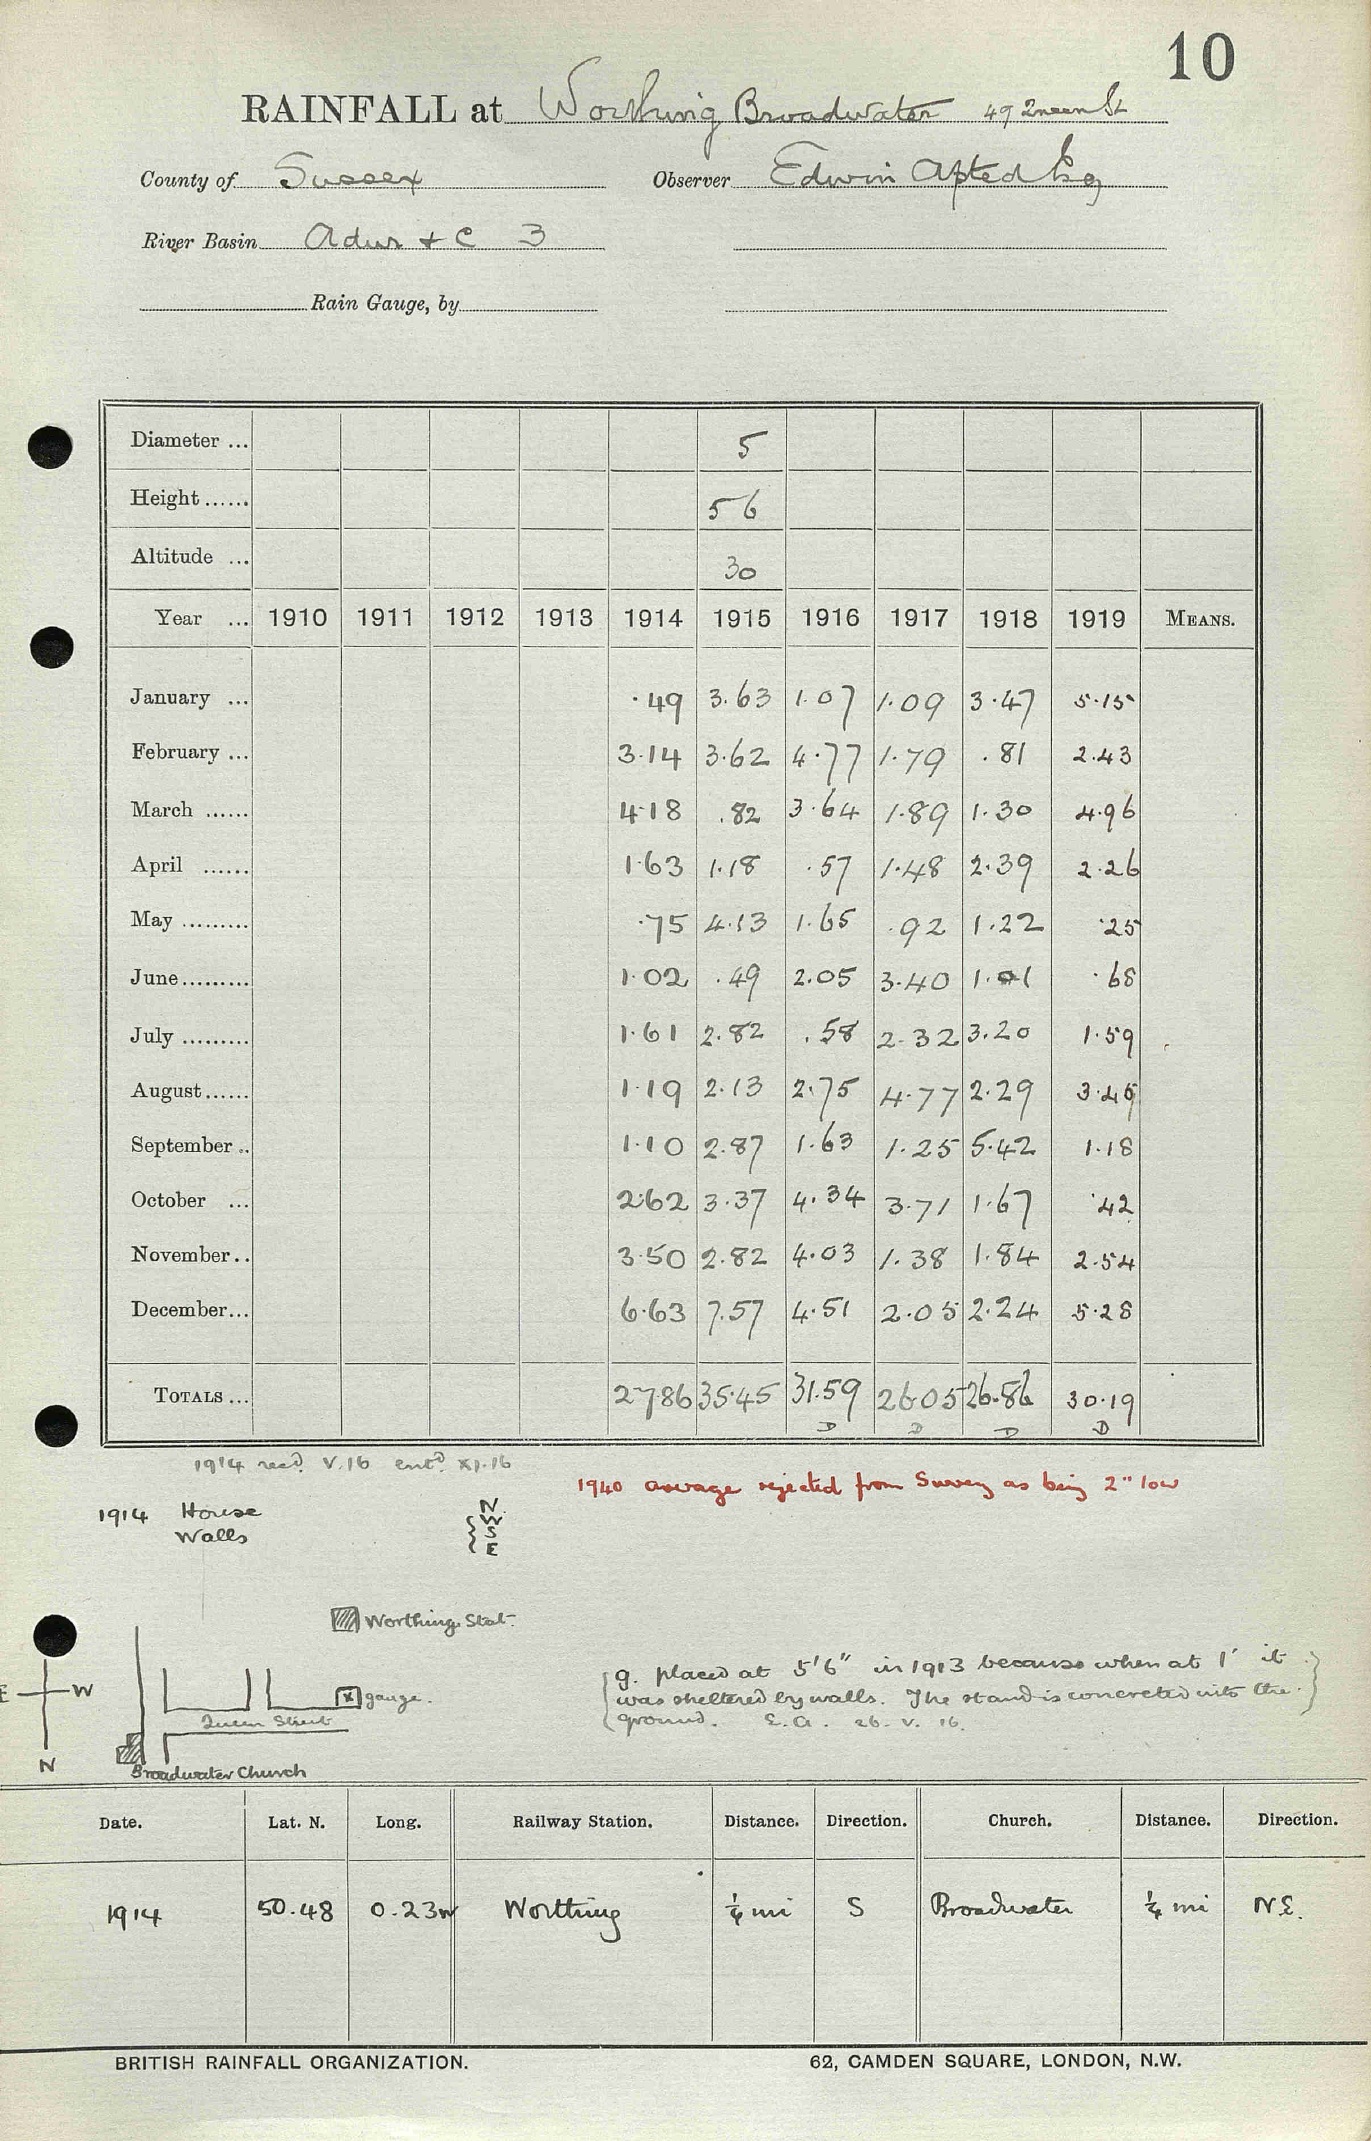 10
RAINFALL at Worthing Broadwater 49 Queen St
County of Sussex Observer Edwin Apted Esq
River Basin Adur & C 3
Rain Gauge, by
Diameter ... 5
Height ...... 56
Altitude ... 30
Year ... 1910 1911 1912 1913 1914 1915 1916 1917 1918 1919 MEANS.
January ... .49 3.63 1.07 1.09 3.47 5.15
February ... 3.14 3.62 4.77 1.79 .81 2.43
March ...... 4.18 .82 3.64 1.89 1.30 4.96
April ...... 1.63 1.18 .57 1.48 2.39 2.26
May ......... .75 4.13 1.65 .92 1.22 .25
June ......... 1.02 .49 2.05 3.40 1.01 .68
July ......... 1.61 2.82 .58 2.32 3.20 1.59
August ...... 1.19 2.13 2.75 4.77 2.29 3.45
September .. 1.10 2.87 1.63 1.25 5.42 1.18
October ... 2.62 3.37 4.34 3.71 1.67 .42
November .. 3.50 2.82 4.03 1.38 1.84 2.54
December ... 6.63 7.57 4.51 2.05 2.24 5.28
TOTALS ... 27.86 35.45 31.59 26.05 26.86 30.19
D D D D
1914 recd. V.16 entd. XI.16
1940 average rejected from Survey as being 2" low
1914 House N.
Walls W
S
E
Worthing Stat.
g. placed at 5'6" in 1913 because when at 1' it
was sheltered by walls. The stand is concreted into the
ground. E.A. 26. V. 16.
E W
N
gauge.
Queen Street
Broadwater Church
Date. Lat. N. Long. Railway Station. Distance. Direction. Church. Distance. Direction.
1914 50.48 0.23W Worthing ¼ mi S Broadwater ¼ mi N.E.
BRITISH RAINFALL ORGANIZATION. 62, CAMDEN SQUARE, LONDON, N.W.